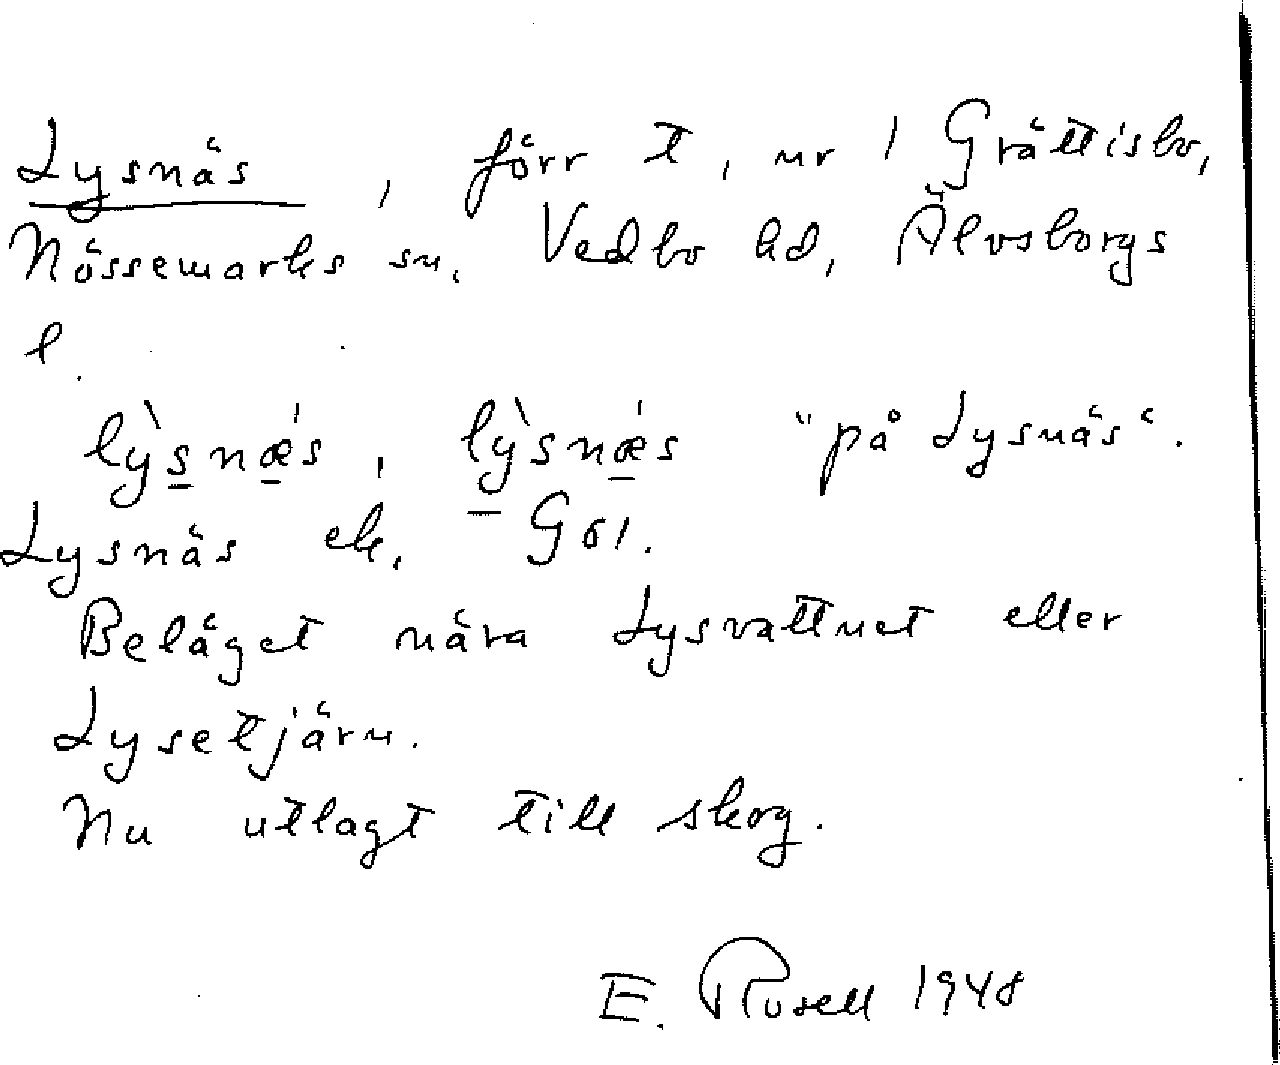 Lysnäs, förr t, nr 1 Grättisbo,
Nössemarks sn. Vedbo hd, Älvsborgs
l.
lỳsnǽs, lỳsnǽs "på Lysnäs".
Lysnäs ek. G61.
Beläget nära Lysvattnet eller
Lysetjärn.
Nu utlagt till skog.
E. Rosell 1948